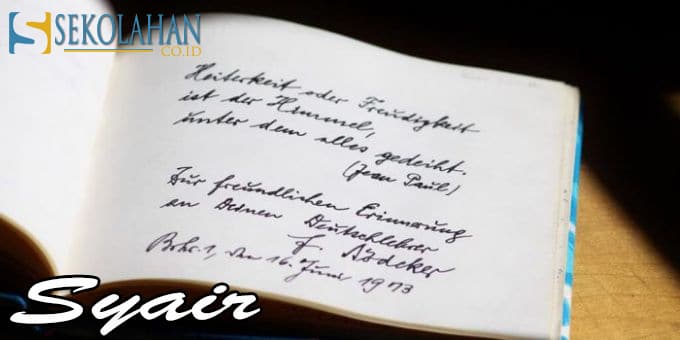 SEKOLAHAN
CO.ID
Heiterkeit oder Freudigkeit
ist der Himmel,
unter dem alles gedeiht.
(Jean Paul)
Zur freundlichen Erinnerung
an Deinen Deutschlehrer
F. Bädcker
den 16. Juni 1973
Syair